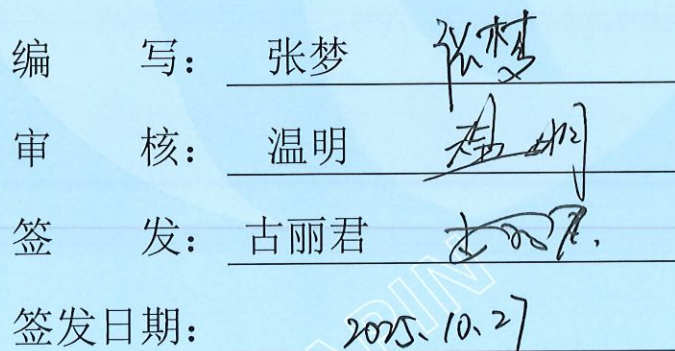 编 写： 张梦 张梦
审 核： 温明 温明
签 发： 古丽君 古丽君
签发日期： 2025.10.27